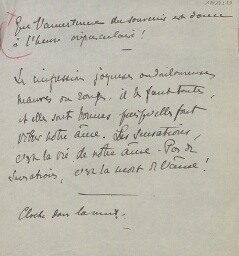 Que l'amertume du souvenir est douce
à l'heure crépusculaire !
Les impressions joyeuses ou douloureuses
il les faut toutes,
et elles sont bonnes puisqu'elles font
vibrer notre âme. Les sensations,
c'est la vie de notre âme. Pas de
sensations, c'est la mort de l'âme !
Cloche dans la nuit.